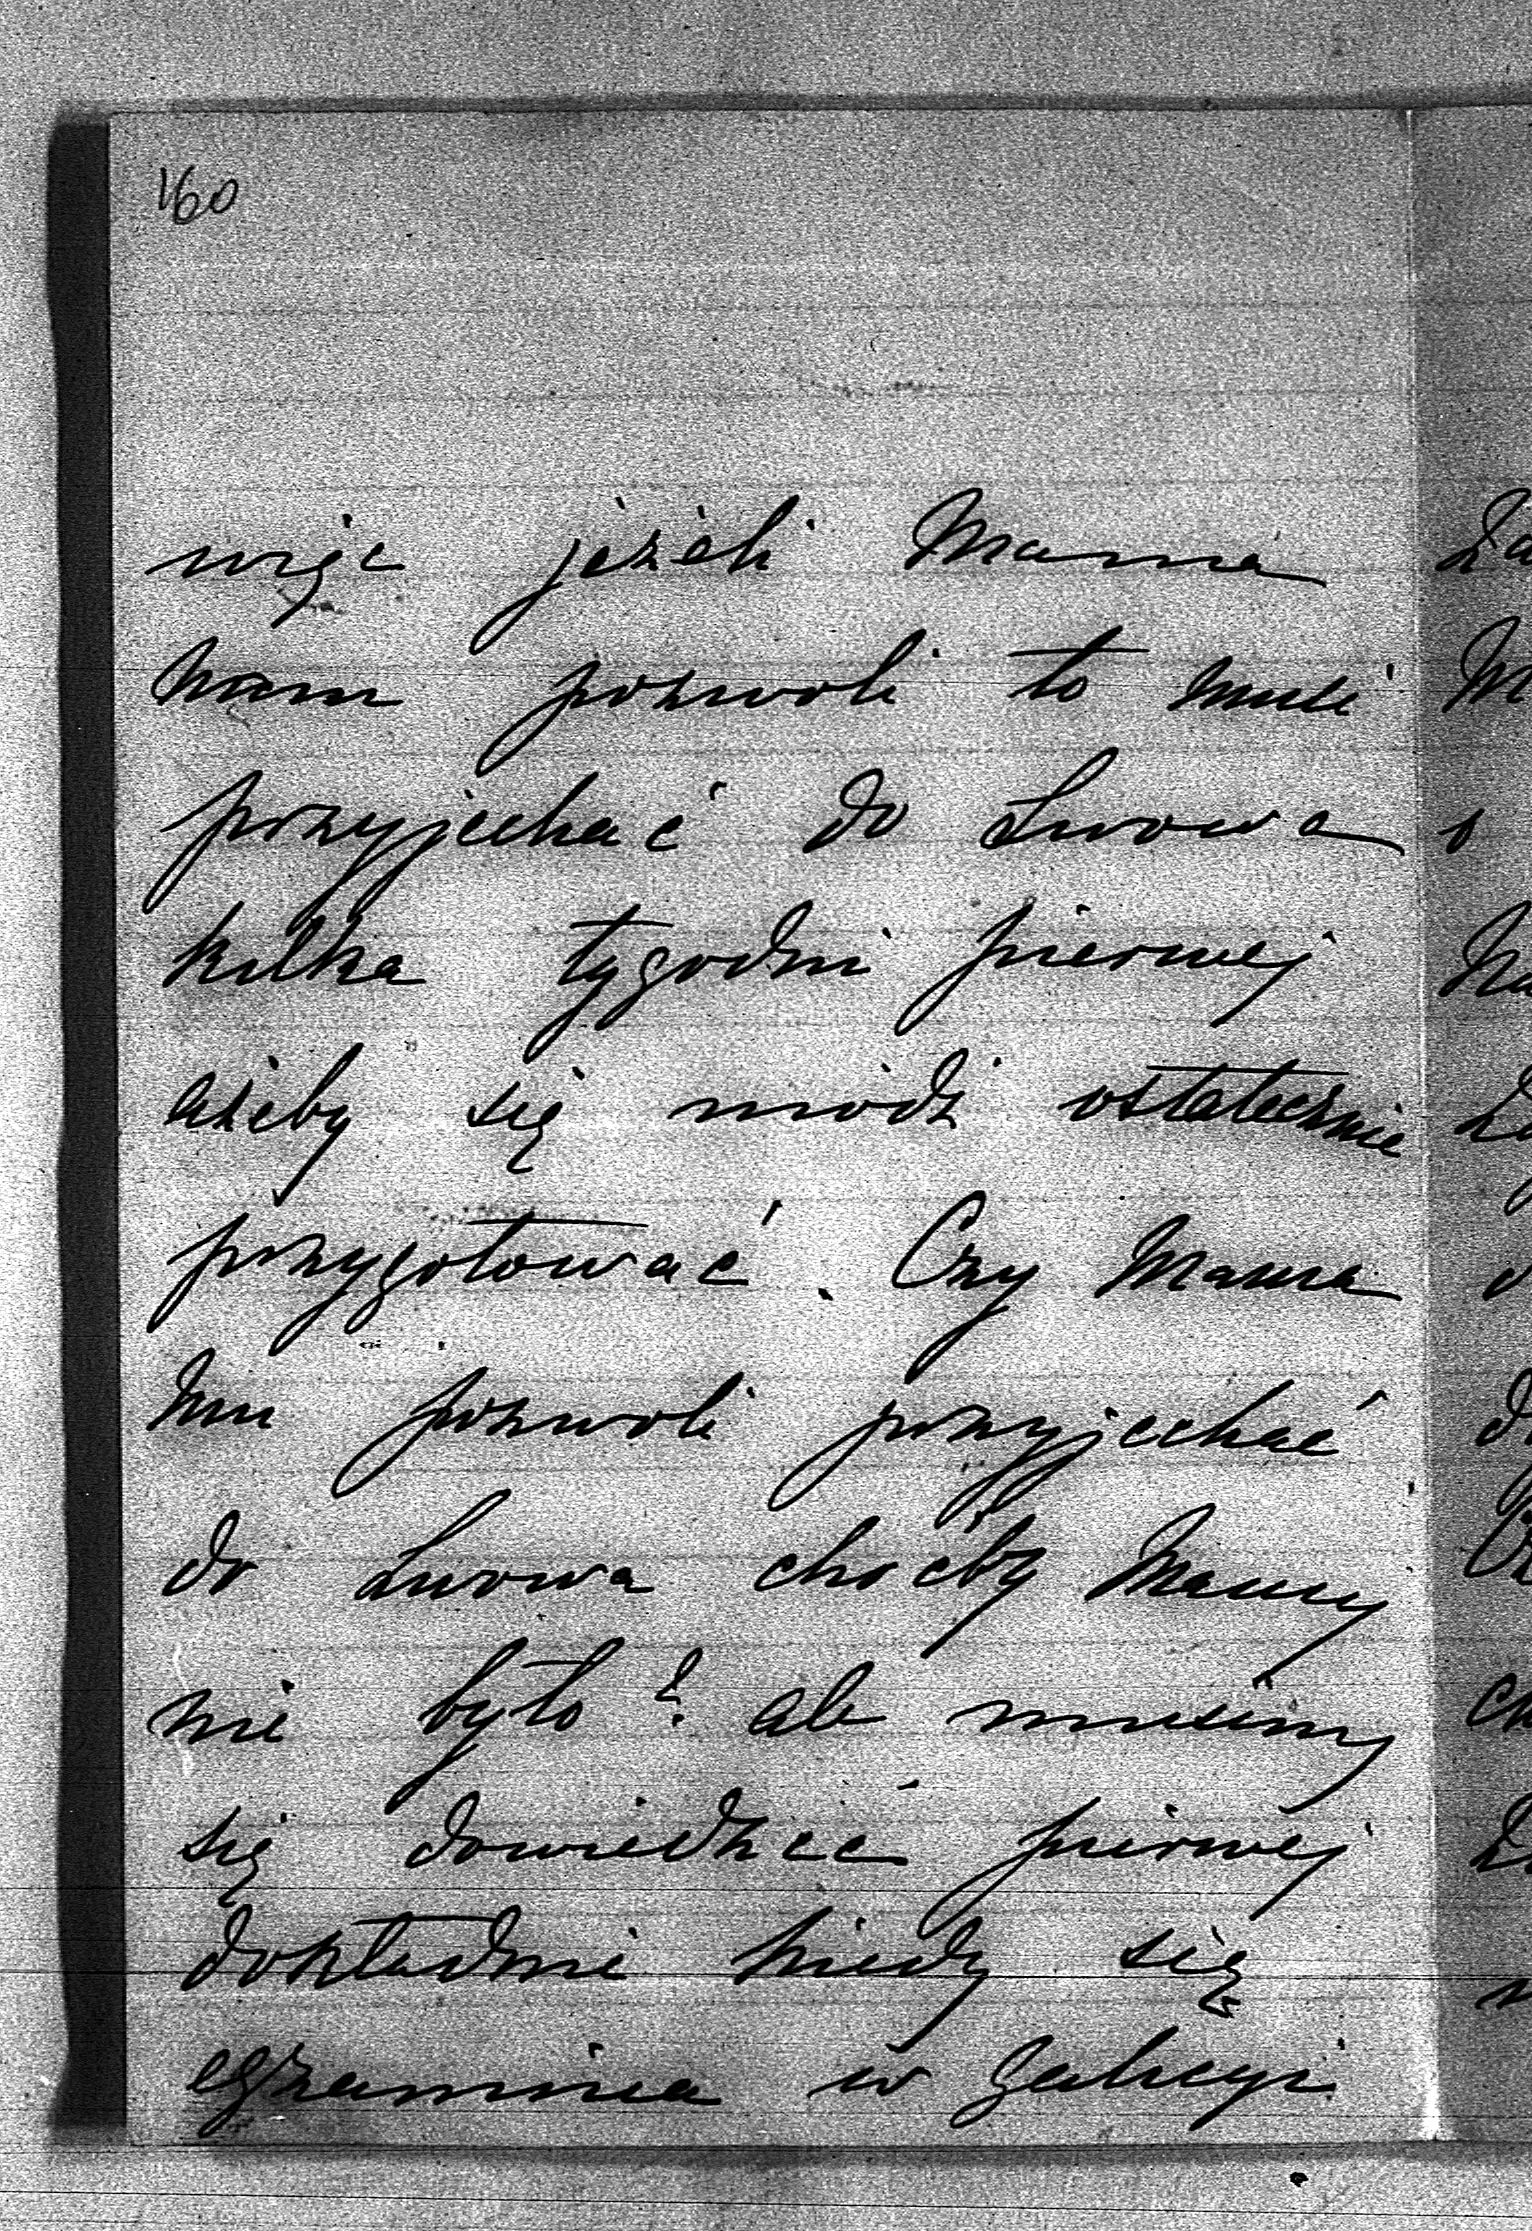 160
więc jeżeli Mama
nam pozwoli to musi
przyjechać do Lwowa
kilka tygodni pierwej
ażeby się módz ostatecznie
przygotować. Czy Mama
mu pozwoli przyjechać
do Lwowa choćby Mamy
nie było? ale musimy
się dowiedzieć pierwej
dokładnie kiedy się
egzamina w Galicyi